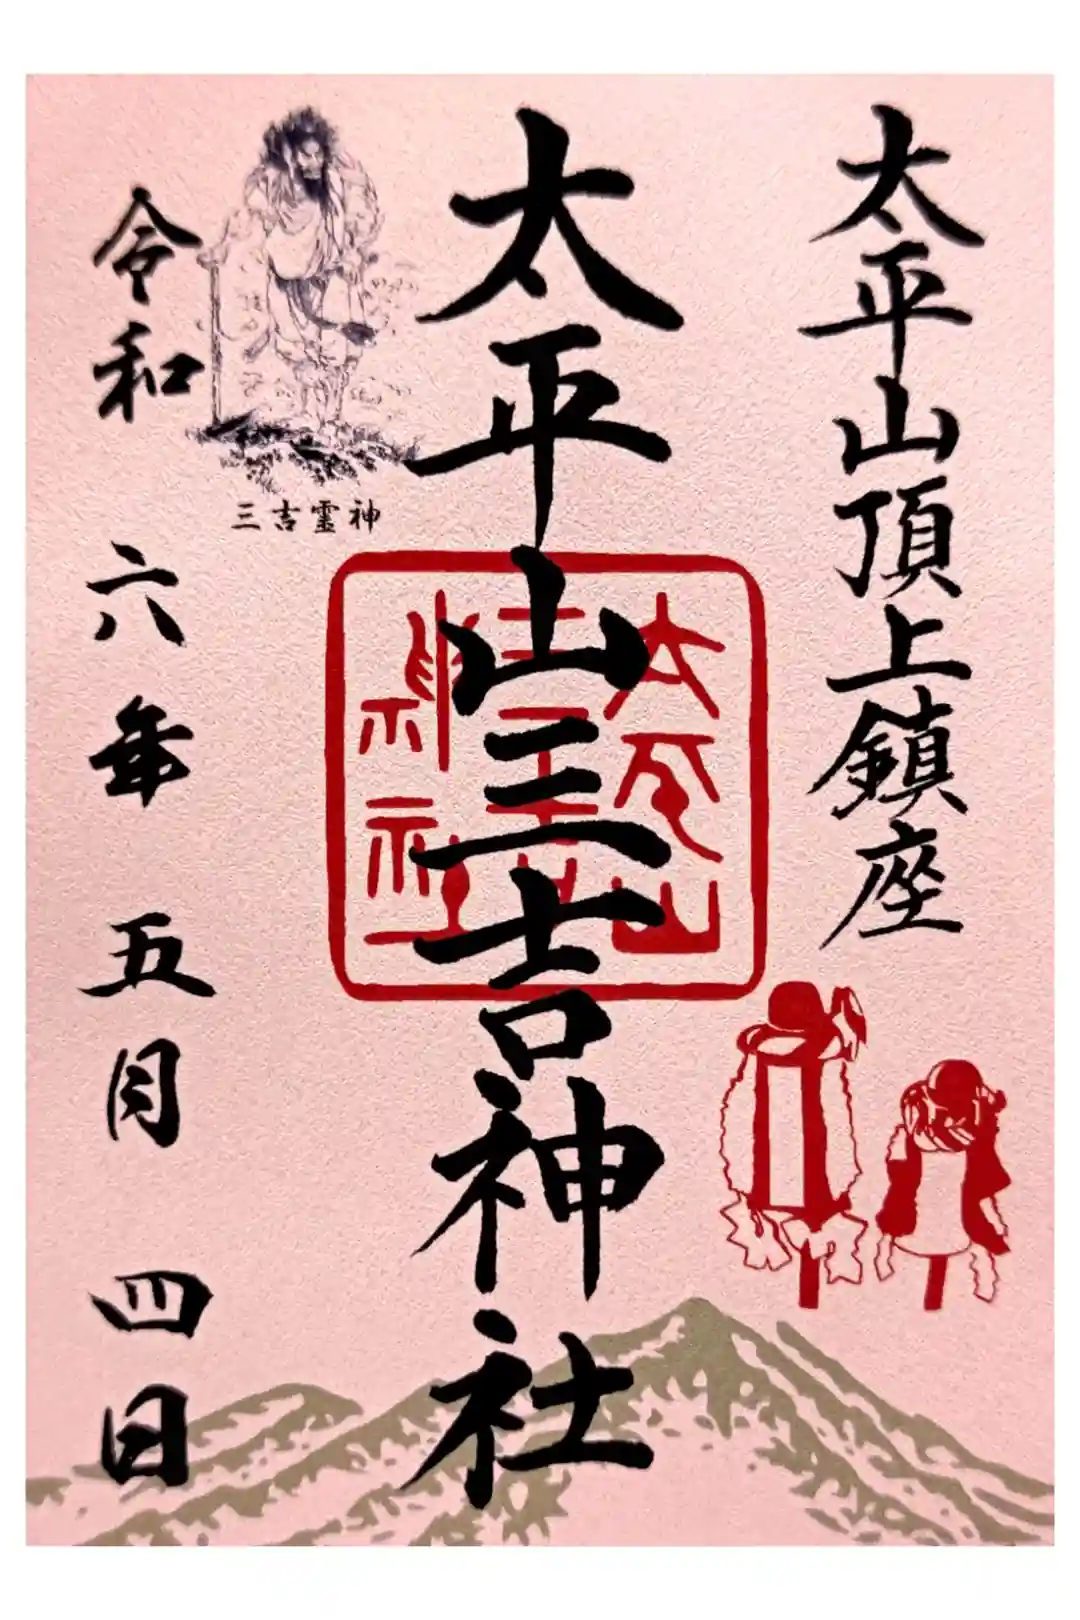 太平山頂上鎮座
太平山三吉神社
太平山
三吉
神社
三吉霊神
令和六年五月四日